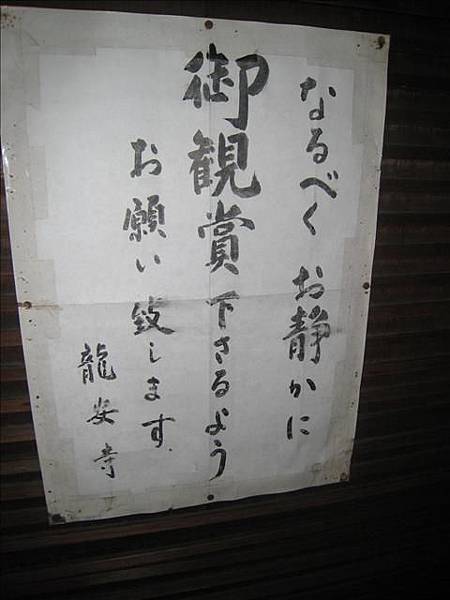 なるべくお静かに
御観賞下さるよう
お願い致します
龍安寺